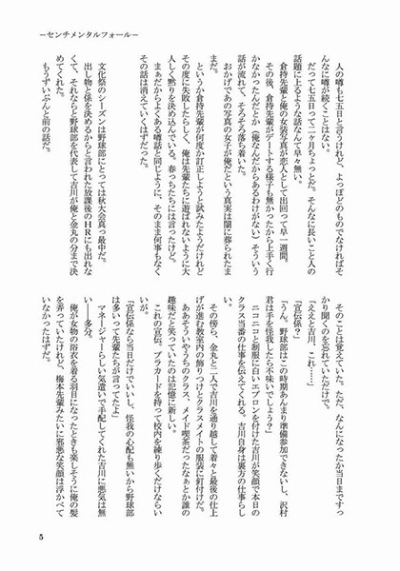 ―センチメンタルフォール―
人の噂も七五日と言うけれど、よっぽどのものでなければそ
んなに噂が続くことはない。
だって七五日って二ヶ月ちょっとだ。そんなに長いこと人の
話題に上るような話なんて早々無い。
倉持先輩と俺の女装写真が恋人として出回って早一週間。
その後、倉持先輩がデートする様子も無かったから上手く行
かなかったんだとか（俺なんだからあるわけがない）そういう
話が流れて、そろそろ落ち着いた。
おかげであの写真の女子が俺だという真実は闇に葬られたま
まだ。
というか倉持先輩が何度か訂正しようと試みたようだけれど
その度に失敗したらしく、俺は先輩たちに遊ばれないように大
人しく黙りを決め込んでいる。春っちたちには言ったけど。
まぁだからよくある噂話と同じように、そのまま何事もなく
その話は消えていくはずだった。
文化祭のシーズンは野球部にとっては秋大会真っ最中だ。
出し物と係を決めるからと言われた放課後のHRにも出れな
くて、それならと野球部を代表して吉川が俺と金丸の分まで決
めてくれたのは
もうずいぶんと前の話だ。
そのことは覚えていた。ただ、なんになったか当日まですっ
かり聞くのを忘れていただけで。
「ええと吉川、これ……」
「宣伝係？」
「うん。野球部はこの時期あんまり準備参加できないし、沢村
君は手を怪我したら不味いでしょう？」
ニコニコと制服に白いエプロンを付けた吉川が笑顔で本日の
クラス当番の仕事を伝えてくれる。吉川自身は裏方の仕事らし
い。
その傍ら、金丸と二人で吉川を通り越して着々と最後の仕上
げが進む教室内の飾りつけとクラスメイトの服装に釘付けだ。
ああそういやうちのクラス、メイド喫茶だったなぁとか誰の
趣味だと笑っていたのは記憶に新しい。
これの宣伝。プラカードを持って校内を練り歩くだけならい
いが。
「宣伝係なら当日だけでいいし、怪我の心配も無いから野球部
は多いって先輩たちが言ってたよ」
マネージャーらしい気遣いで手配してくれた吉川に悪気は無
い――多分。
俺が女物の浴衣を着る羽目になったときも楽しそうに俺の髪
を弄っていたけれど、梅本先輩みたいに邪悪な笑顔は浮かべて
いなかったはずだ。
5